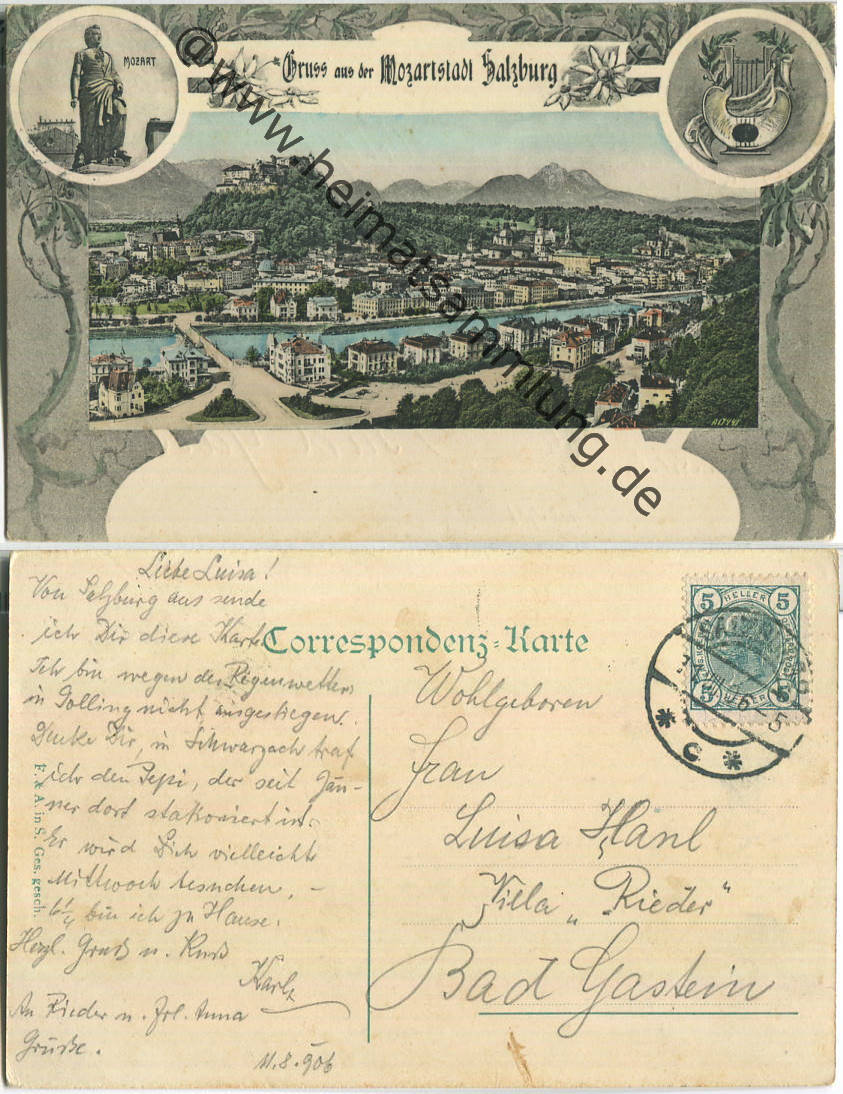 MOZART
Gruss aus der Mozartstadt Salzburg
@www.heimatsammlung.de
Correspondenz-Karte
5 HELLER 5
5 HELLER 5
C
Liebe Luisa!
Von Salzburg aus sende
ich Dir diese Karte.
Ich bin wegen des Regenwetters
in Golling nicht ausgestiegen.
Denke Dir, in Schwarzach traf
ich den Pepi, der seit Jän-
ner dort stationiert ist.
Er wird Dich vielleicht
Mittwoch besuchen, –
bin ich zu Hause.
Herzl. Gruß u. Kuß
Karl
An Rieder u. Frl. Anna
Grüße.
11.8.906
F. & A. in S. Ges. gesch.
Wohlgeboren
Frau
Luisa Hänl
Villa „Rieder"
Bad Gastein